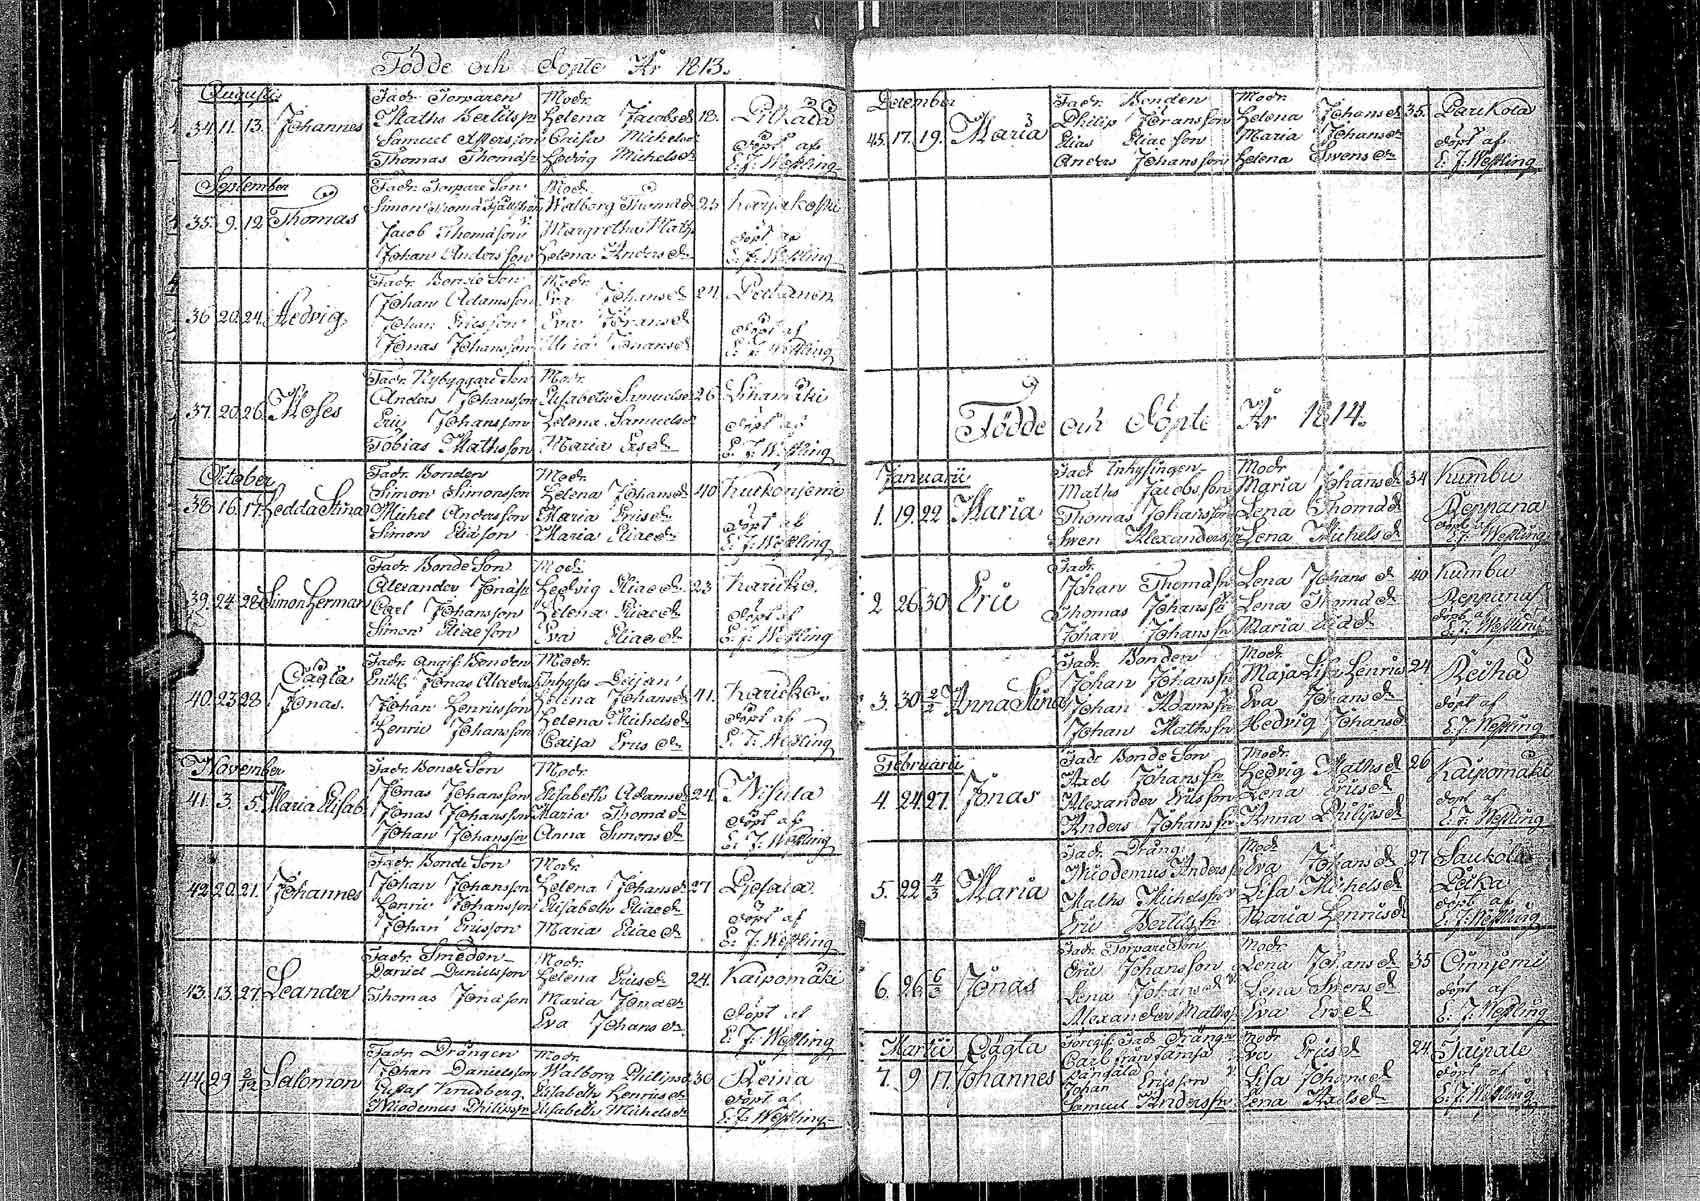 Födde och Döpte År 1813.
Augusti
34. 11. 13. Johannes
Fadr. Torparen
Maths Bertilss
Samuel
Thomas Thomass
Modr.
Helena Jacobsd 18.
Caisa Michelsd
Hedvig Michelsd
Pilkala
döpt af
E. J. Wessling
September
35. 9. 12 Thomas
Fadr. Torpare Son
Simon
Jacob Thomasson
Johan Andersson
Modr.
Walborg Thomasd 23
Margretha Maths
Helena Andersd
Karjakoski
döpt af
E. J. Wessling
36 20. 24. Hedvig
Fadr. Bonde Son
Johan Adamsson
Johan Ericsson
Jonas Johansson
Modr.
Eva Johansd 24.
Eva Johansd
Johansd
döpt af
E. J. Wessling
37. 20. 26. Moses
Fadr. Nybyggare Son
Anders Johansson
Eric Johansson
Tobias Mathsson
Modr.
Elisabeth Samuelsd 26
Helena Samuelsd
Maria Ersd
Lihamäki
döpt af
E. J. Wessling
October
38. 16. 17. Hedda Stina
Fadr. Bonden
Simon Simonsson
Michel Andersson
Simon Eliasson
Modr.
Helena Johansd 40
Maria Ericsd
Maria Eliaed
Kurkonjemi
döpt af
E. J. Wessling
39. 24. 26 Simon Herman
Fadr. Bonde Son
Alexander Jonass
Carl Johansson
Simon Eliaeson
Modr.
Hedvig Eliaed 23
Helena Eliaed
Eva Eliaed
Karicko.
döpt af
E. J. Wessling
Oägta
40. 23 28. Jonas.
Fadr. Angifs Bonden
Enkl. Jonas
Johan Henricsson
Henric Johansson
Modr.
Inhyses Pigan
Helena Johansd 41.
Helena Michelsd
Caisa Ericsd
Karicko.
döpt af
E. J. Wessling
November
41. 3. 5. Maria Elisab.
Fadr. Bonde Son
Jonas Johansson
Jonas Johansson
Johan Johansson
Modr.
Elisabeth Adamsd 24.
Maria Thomasd
Anna Simonsd
Nisula
döpt af
E. J. Wessling
42. 20. 21. Johannes
Fadr. Bonde Son
Johan Johansson
Henric Johansson
Johan Ericsson
Modr.
Helena Johansd 27
Elisabeth Eliaed
Maria Eliaed
döpt af
E. J. Wessling
43. 13. 27. Leander
Fadr. Smeden
David Danielsson
Thomas Jonasson
Modr.
Helena Ericsd 24.
Maria Jonaed
Eva Johansd
Kaipomäki
döpt af
E. J. Wessling
44. 29 2/12 Salomon
Fadr. Drängen
Johan Danielsson
Gustaf
Nicodemus Philipss
Modr.
Walborg Philipsd 30
Elisabeth Henricsd
Elisabeth Michelsd
Reina
döpt af
E. J. Wessling
December
45. 17. 19. Maria
Fadr. Bonden
Philip Jöransson
Elias Eliaeson
Anders Johansson
Modr.
Helena Johansd 35.
Maria Johansd
Helena Svensd
Parikola
döpt af
E. J. Wessling
Födde och Döpte År 1814.
Januarii
1. 19. 22 Maria
Fadr. Inhysingen
Maths Jacobsson
Thomas Johansson
Sven Alexanders
Modr
Maria Johansd 34
Lena Thomasd
Lena Michelsd
Kumbu
Reppana
döpt af
E. J. Wessling
2 26 30 Eric
Fadr.
Johan Thomass
Thomas Johanss
Johan Johanss
Lena Johansd 40
Lena Thomasd
Maria
Kumbu
Reppana
döpt af
E. J. Wessling
3. 30 2/2 Anna Stina
Fadr. Bonden
Johan Johanss
Johan Adamss
Johan Mathss
Modr.
Maja Lis. Henrics 24
Eva Johansd
Hedvig Johansd
döpt af
E. J. Wessling
Februarii
4. 24. 27. Jonas
Fadr. Bonde Son
Axel Johanss
Alexander Ericsson
Anders Johanss
Modr.
Hedvig Mathsd 26
Lena Ericsd
Anna Philipsd
Kaipomäki
döpt af
E. J. Wessling
5. 22. 4/3 Maria
Fadr. Dräng
Nicodemus Anderss
Maths Michelss
Eric Bertilss
Modr
Eva Johansd 27
Lisa Michelsd
Maria Henricsd
Saukola
döpt af
E. J. Wessling
6. 26 6/3 Jonas
Fadr. Torpare Son
Eric Johansson
Lena Johansd
Alexander Maths
Modr.
Lena Johansd 35
Lena Svensd
Eva Ersd
döpt af
E. J. Wessling
Martii Oägta
7. 9 17. Johannes
Föregif. Fadr Dräng
Carl från Jamsa
Johan Ericsson
Samuel Anderss
Modr
Eva Ericsd 24.
Lisa Johansd
Lena Axelsd
Taipale
döpt af
E. J. Wessling